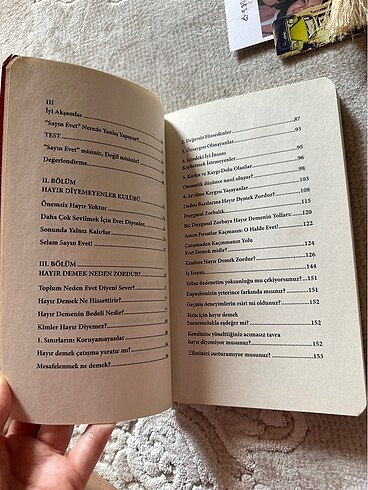 III
İyi Akşamlar
"Sayın Evet" Nerede Yanlış Yapıyor?
TEST
"Sayın Evet" misiniz, Değil misiniz?
Değerlendirme
II. BÖLÜM
HAYIR DİYEMEYENLER KULÜBÜ
Önemsiz Hayır Yoktur
Daha Çok Sevilmek İçin Evet Diyenler,
Sonunda Yalnız Kalırlar
Selam Sayın Evet!
III. BÖLÜM
HAYIR DEMEK NEDEN ZORDUR?
Toplum Neden Evet Diyeni Sever?
Hayır Demek Ne Hissettirir?
Hayır Demenin Bedeli Nedir?
Kimler Hayır Diyemez?
1. Sınırlarını Koruyamayanlar
Hayır demek çatışma yaratır mı?
Mesafelenmek ne demek?
2. Değersiz Hissedenler 87
3. Özsaygısı Olmayanlar 93
4. İçindeki İyi İnsanı
Kaybetmek İstemeyenler 95
5. Kaska ve Kaygı Dolu Olanlar 96
Otomatik düşünce nasıl oluşur? 98
6. Sevilme Kaygısı Yaşayanlar 103
Neden Bazılarına Hayır Demek Zordur? 108
Duygusal Zorbalık 115
Bir Duygusal Zorbaya Hayır Demenin Yolları: 120
Aman Fırsatlar Kaçmasın: O Halde Evet!
Çatışmadan Kaçınmanın Yolu
Evet Demek midir? 124
Kimlere Hayır Demek Zordur? 126
İş Hayatı 144
Yoksa özdenetim yoksunluğu mu çekiyorsunuz? 151
Kapasitenizin yeterince farkında mısınız? 151
Geçmiş deneyimlerin esiri mi oldunuz? 152
Sizin için hayır demek
kusursuzlukla eşdeğer mi? 152
Kendinize yönelttiğiniz acımasız tavra
hayır diyemiyor musunuz? 152
Zihninizi susturamıyor musunuz? 153